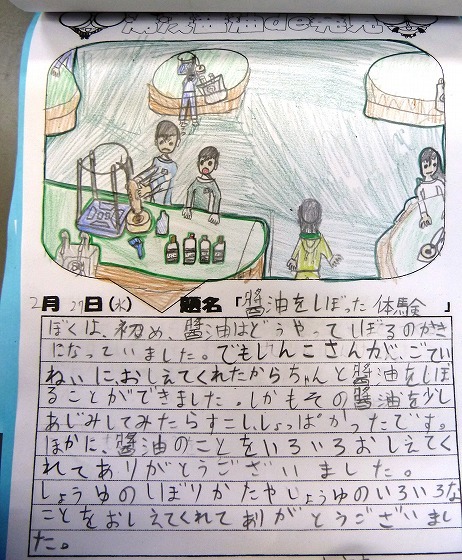 醤油de発見
2月27日(水) 題名「醬油をしぼった体験」
ぼくは、初め、醬油はどうやってしぼるのかき
になっていました。でもしんこさんが、ごてい
ねいに、おしえてくれたからちゃんと醬油をしぼ
ることができました。しかもその醬油を少し
あじみしてみたらすこししょっぱかったです。
ほかに、醬油のことをいろいろおしえてく
れてありがとうございました。
しょうゆのしぼりかたやしょうゆのいろいろな
ことをおしえてくれてありがとうございまし
た。